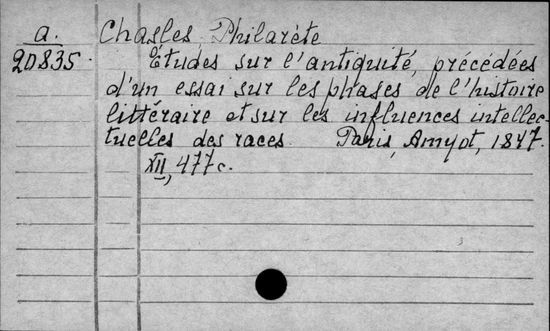 a. Chasles Philarète
20835. Études sur l'antiquité, précédées
d'un essai sur les phases de l'histoire
littéraire et sur les influences intellec-
tuelles des races. Paris, Amyot, 1847.
XII, 477 c.